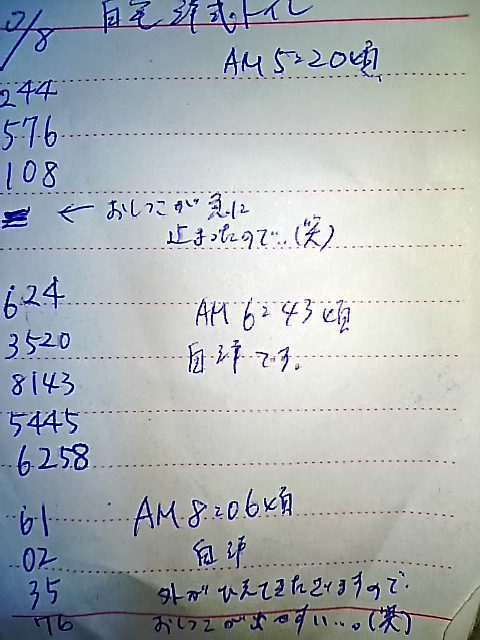 0/8 自宅洋式トイレ
AM 5:20頃
244
576
108
← おしっこが急に
止まったので‥(笑)
624
AM 6:43頃
3520
自洋です。
8143
5445
6258
61
AM 8:06頃
02
自洋
35
外がひえてきたざいますので、
76
おしっこが出やすい…。(笑)